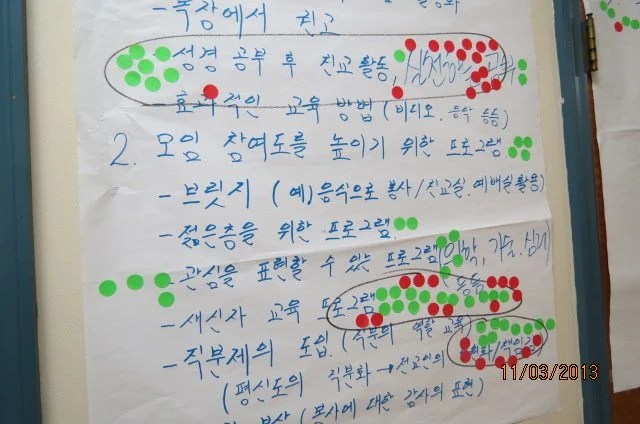 - 목장에서 친교
- 성경 공부 후 친교 활동,
- 효과적인 교육 방법 (비디오, 음악 등등)
2. 모임 참여도를 높이기 위한 프로그램
- 브릿지 (예) 음식으로 봉사/친교실, 예배실 활용)
- 젊은층을 위한 프로그램
- 관심을 표현할 수 있는 프로그램 (음악, 기술, 심리
등등)
- 새신자 교육 프로그램
- 직분제의 도입 (직분의 역할 교육)
(평신도의 직분화 → 전교인의
(봉사에 대한 감사의 표현)
11/03/2013